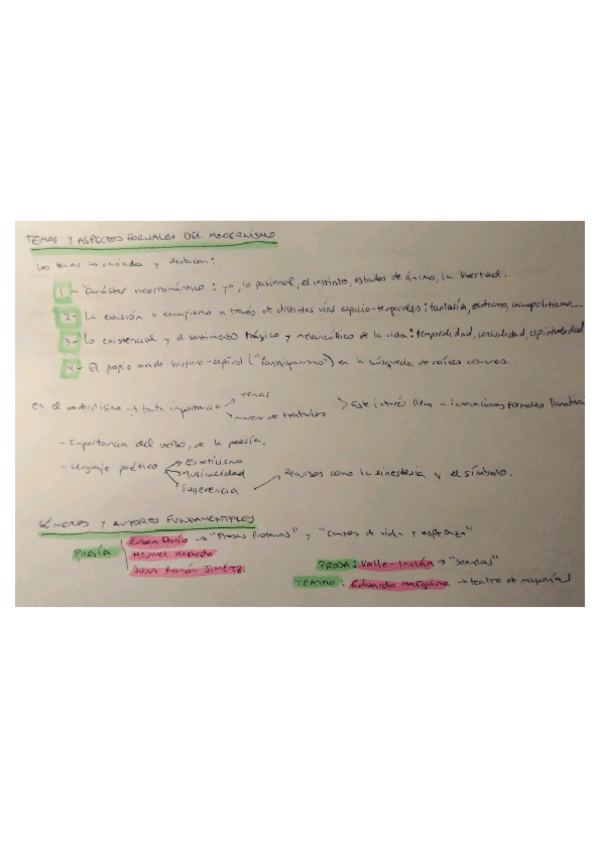 TEMAS Y ASPECTOS FORMALES DEL MODERNISMO
Los temas → variados y destacan:
1- Carácter neorromántico: yo, lo pasional, el instinto, estados de ánimo, la libertad.
2- La evasión o escapismo a través de distintas vías espacio-temporales: fantasía, exotismo, cosmopolitismo...
3- Lo existencial y el sentimiento trágico y melancólico de la vida: temporalidad, sensualidad, espiritualidad
4- El propio mundo hispano-español ("Panhispanismo") en la búsqueda de raíces comunes
En el modernismo → tanta importancia temas
manera de tratarlos
> Este interés lleva a innovaciones formales
- Importancia del verso, de la poesía.
- Lenguaje poético → Esteticismo
Musicalidad
Sugerencia → Recursos como la sinestesia y el símbolo.
GÉNEROS Y AUTORES FUNDAMENTALES
POESÍA Rubén Darío → "Prosas Profanas" y "Cantos de vida y esperanza"
Manuel Machado
Juan Ramón Jiménez
PROSA: Valle-Inclán → "Sonatas"
TEATRO: Eduardo Marquina → teatro de